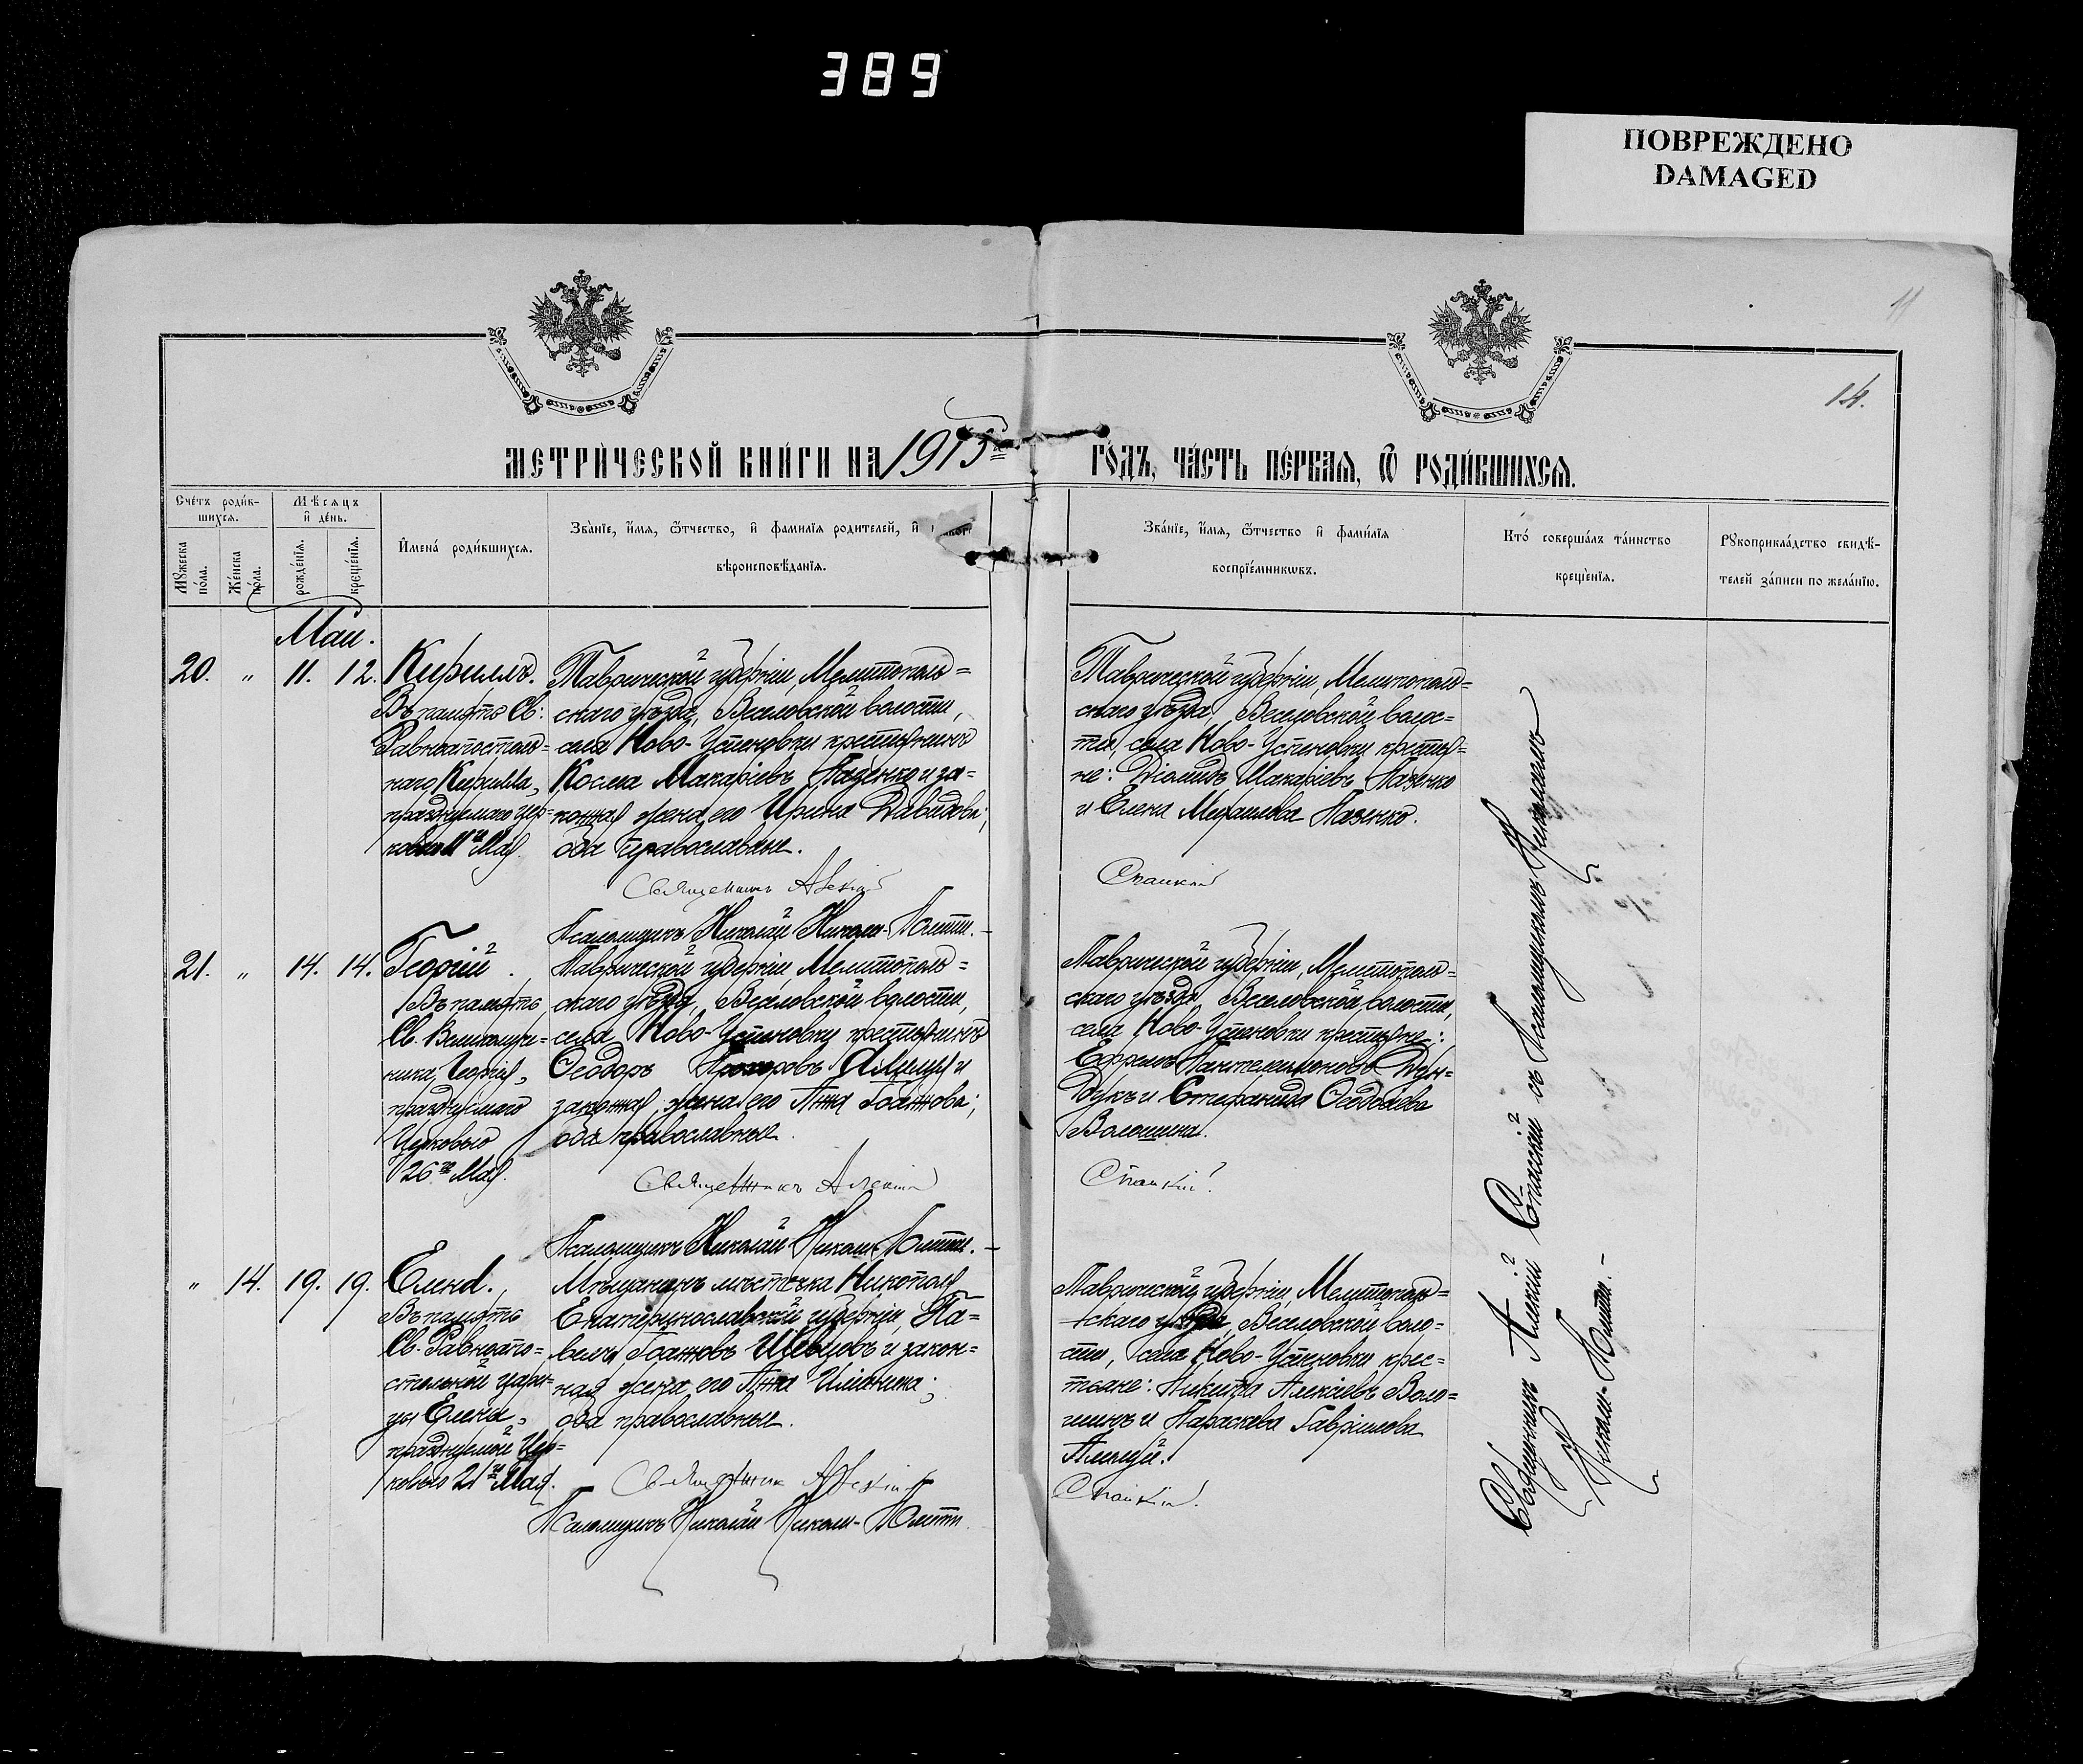 389
ПОВРЕЖДЕНО
DAMAGED
11
14.
МЕТРИ́ЧЕСКОЙ КНИ́ГИ НА 1915й
ГО́ДЪ, ЧА́СТЬ ПЕ́РВАЯ, Ѿ РОДИ́ВШИХСЯ.
Сче́тъ роди́в-
шихся.
Мѣсяцъ
и҆ де́нь.
Мꙋжеска по́ла.
Же́нска по́ла.
рожде́нїѧ.
креще́нїѧ.
И҆мена̀ роди́вшихся.
Зва́нїе, и҆́мя, ѿчество, и҆ фамилїѧ родителей, и҆
вѣроисповѣ́данїѧ.
Зва́нїе, и҆́мя, ѿчество и҆ фами́лїѧ
воспрїе́мникѡвъ.
Кто̀ соверша́лъ та́инство
креще́нїѧ.
Рꙋкоприкла́дство свидѣ́-
телей за́писи по жела́нїю.
Маи.
20. " 11. 12. Кириллъ.
Въ память Св:
Равноапостоль=
наго Кирилла,
празднуемаго цер=
ковію 11го Мая.
Таврической губерніи, Мелитополь=
скаго уѣзда, Веселовской волости,
села Ново-Успеновки крестьянинъ
Косма Макаріевъ Пазенко и за=
конная жена его Ирина Давидова;
оба православные.
Священникъ Алексій
Псаломщикъ Николай Николи-Политти.
Таврической губерніи, Мелитополь=
скаго уѣзда, Веселовской волос=
ти, села Ново-Успеновки крестья=
не: Діомидъ Макаріевъ Пазенко
и Елена Михаилова Пазенко.
Спасскій
21. " 14. 14. Георгій.
Въ память
Св. Великомуче=
ника Георгія,
празднуемаго
Церковью
26го Мая.
Таврической губерніи, Мелитополь=
скаго уѣзда, Веселовской волости,
села Ново-Успеновки крестьянинъ
Ѳеодоръ Прохоровъ и
законная жена его Анна Іоаннова;
оба православные.
Священникъ Алексій
Псаломщикъ Николай Николи-Политти.
Таврической губерніи, Мелитополь=
скаго уѣзда, Веселовской волости,
села Ново-Успеновки крестьяне:
Ефремъ Пантелеимоновъ Дун=
дукъ и Стефанида Ѳеодосіева
Волошина.
Спасскій.
" 14. 19. 19. Елена.
Въ память
Св. Равноапо=
стольной цари=
цы Елены,
празднуемой Цер=
ковью 21го Мая.
Мѣщанинъ мѣстечка Никополя
Екатеринославской губерніи, Па=
велъ Іоанновъ Шевцовъ и закон=
ная жена его Анна
оба православные.
Священникъ Алексій
Псаломщикъ Николай Николи-Политти.
Таврической губерніи, Мелитополь=
скаго уѣзда, Веселовской воло=
сти, села Ново-Успеновки крес=
тьяне: Никита Алексіевъ Воло=
шинъ и Параскева Гавріилова
Спасскій.
Священникъ Алексій Спасскій съ Псаломщикомъ Николаемъ
Николи-Политти.